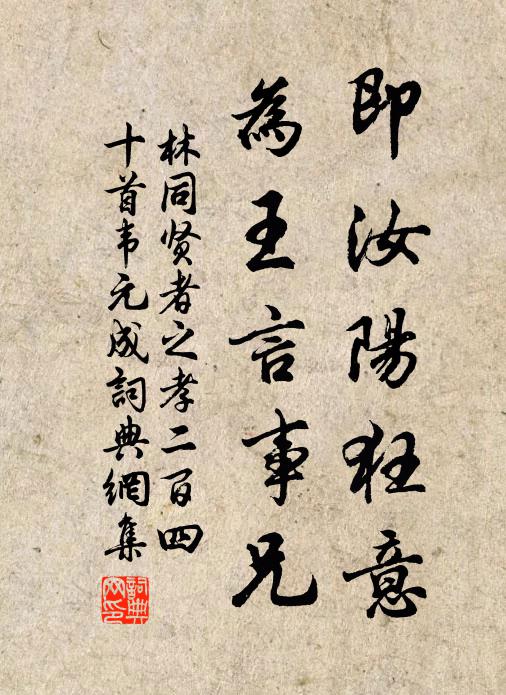 即汝陽狂意
為王言事兄
林同贤者之孝二百四
十首韦元成詞典網集